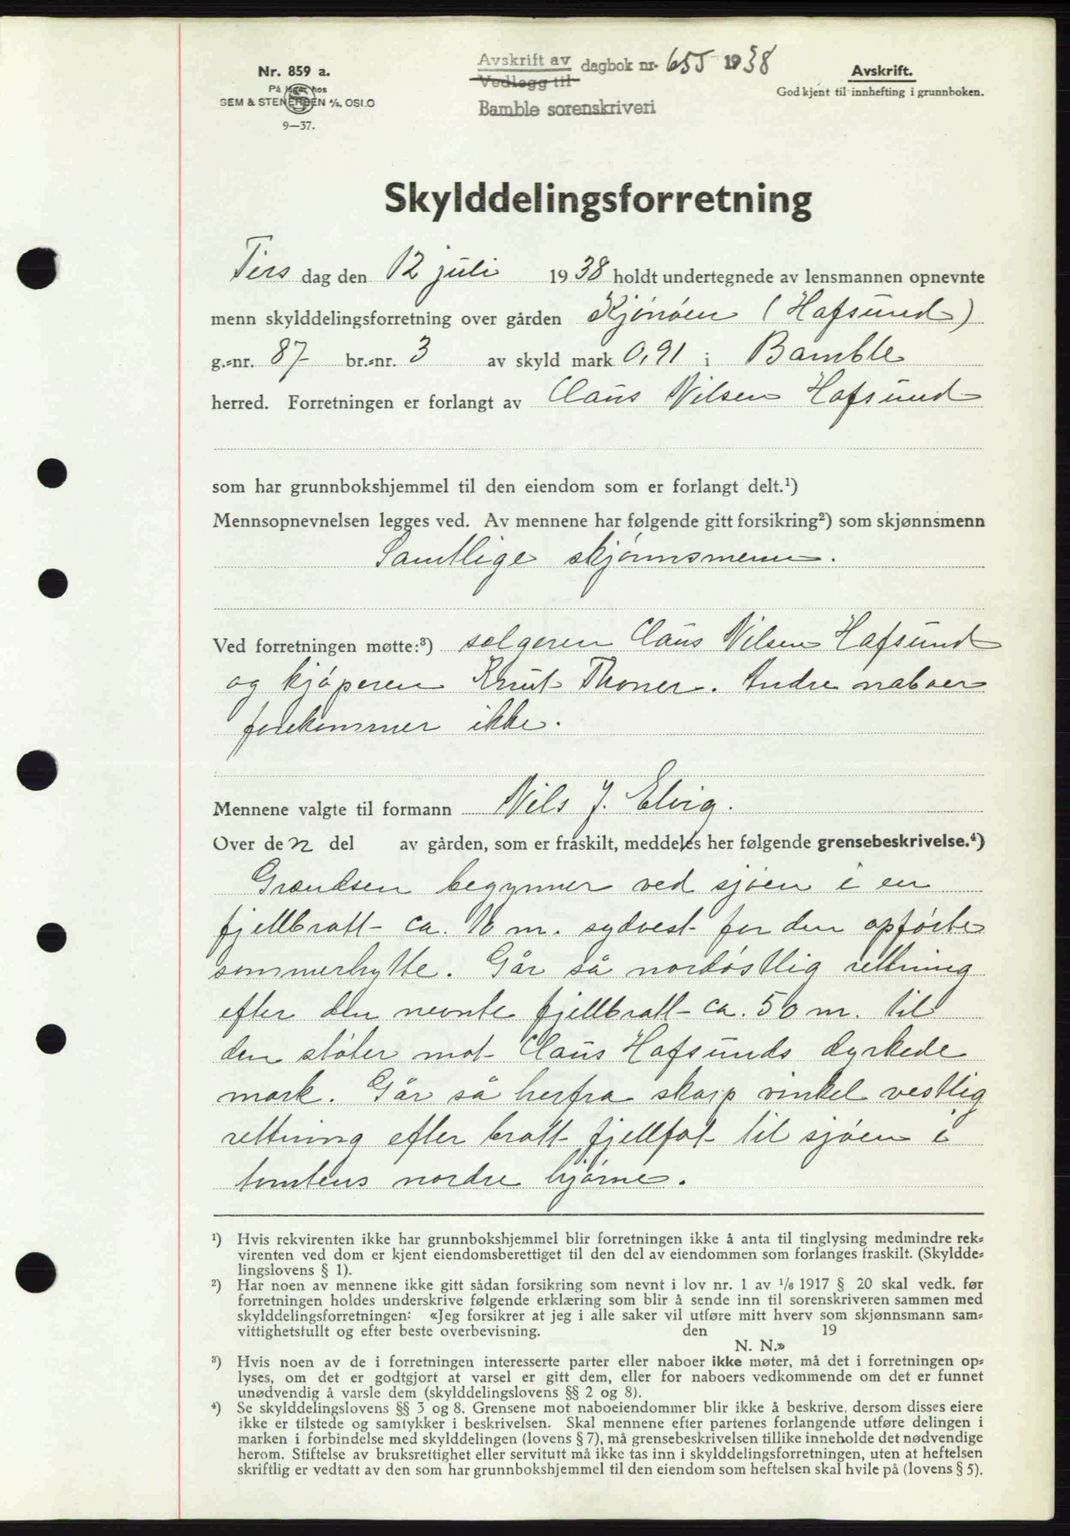 Nr. 859 a.
På lager hos
SEM & STENERSEN A/S. OSLO
9—37.
Avskrift av
Vedlegg til
dagbok nr. 655 1938
Bamble sorenskriveri
Avskrift.
Godkjent til innhefting i grunnboken.
Skylddelingsforretning
Tirs dag den 12 juli 1938 holdt undertegnede av lensmannen opnevnte
menn skylddelingsforretning over gården Kjønøen (Hafsund)
g.-nr. 87 br.-nr. 3 av skyld mark 0,91 i Bamble
herred. Forretningen er forlangt av Claus Nilsen Hafsund
som har grunnbokshjemmel til den eiendom som er forlangt delt.¹)
Mennsopnevnelsen legges ved. Av mennene har følgende gitt forsikring²) som skjønnsmenn
Samtlige skjønnsmenn.
Ved forretningen møtte:³) selgeren Claus Nilsen Hafsund
og kjøperen Knut Thoner. Andre naboer
forekommer ikke.
Mennene valgte til formann Nils J. Elvig.
Over den del av gården, som er fraskilt, meddeles her følgende grensebeskrivelse.⁴)
Grændsen begynner ved sjøen i en
fjellbratt ca. 16 m. sydvest for den opførte
sommerhytte. Går så nordøstlig rettning
efter den nevnte fjellbratt ca. 50 m. til
den støter mot Claus Hafsunds dyrkede
mark. Går så herfra skarp vinkel vestlig
rettning efter bratt fjellfot til sjøen i
tomtens nordre hjørne.
¹) Hvis rekvirenten ikke har grunnbokshjemmel blir forretningen ikke å anta til tinglysing medmindre rek-
virenten ved dom er kjent eiendomsberettiget til den del av eiendommen som forlanges fraskilt. (Skyldde-
lingslovens § 1).
²) Har noen av mennene ikke gitt sådan forsikring som nevnt i lov nr. 1 av 1/6 1917 § 20 skal vedk. før
forretningen holdes underskrive følgende erklæring som blir å sende inn til sorenskriveren sammen med
skylddelingsforretningen: «Jeg forsikrer at jeg i alle saker vil utføre mitt hverv som skjønnsmann sam-
vittighetsfullt og efter beste overbevisning. den 19
N. N.»
³) Hvis noen av de i forretningen interesserte parter eller naboer ikke møter, må det i forretningen op-
lyses, om det er godtgjort at varsel er gitt dem, eller for naboers vedkommende om det er funnet
unødvendig å varsle dem (skylddelingslovens §§ 2 og 8).
⁴) Se skylddelingslovens §§ 3 og 8. Grensene mot naboeiendommer blir ikke å beskrive, dersom disses eiere
ikke er tilstede og samtykker i beskrivelsen. Skal mennene efter partenes forlangende utføre delingen i
marken i forbindelse med skylddelingen (lovens § 7), må grensebeskrivelsen tillike inneholde det nødvendige
herom. Stiftelse av bruksrettighet eller servitutt må ikke tas inn i skylddelingsforretningen, uten at heftelsen
skriftlig er vedtatt av den som har grunnbokshjemmel til den eiendom som heftelsen skal hvile på (lovens § 5).